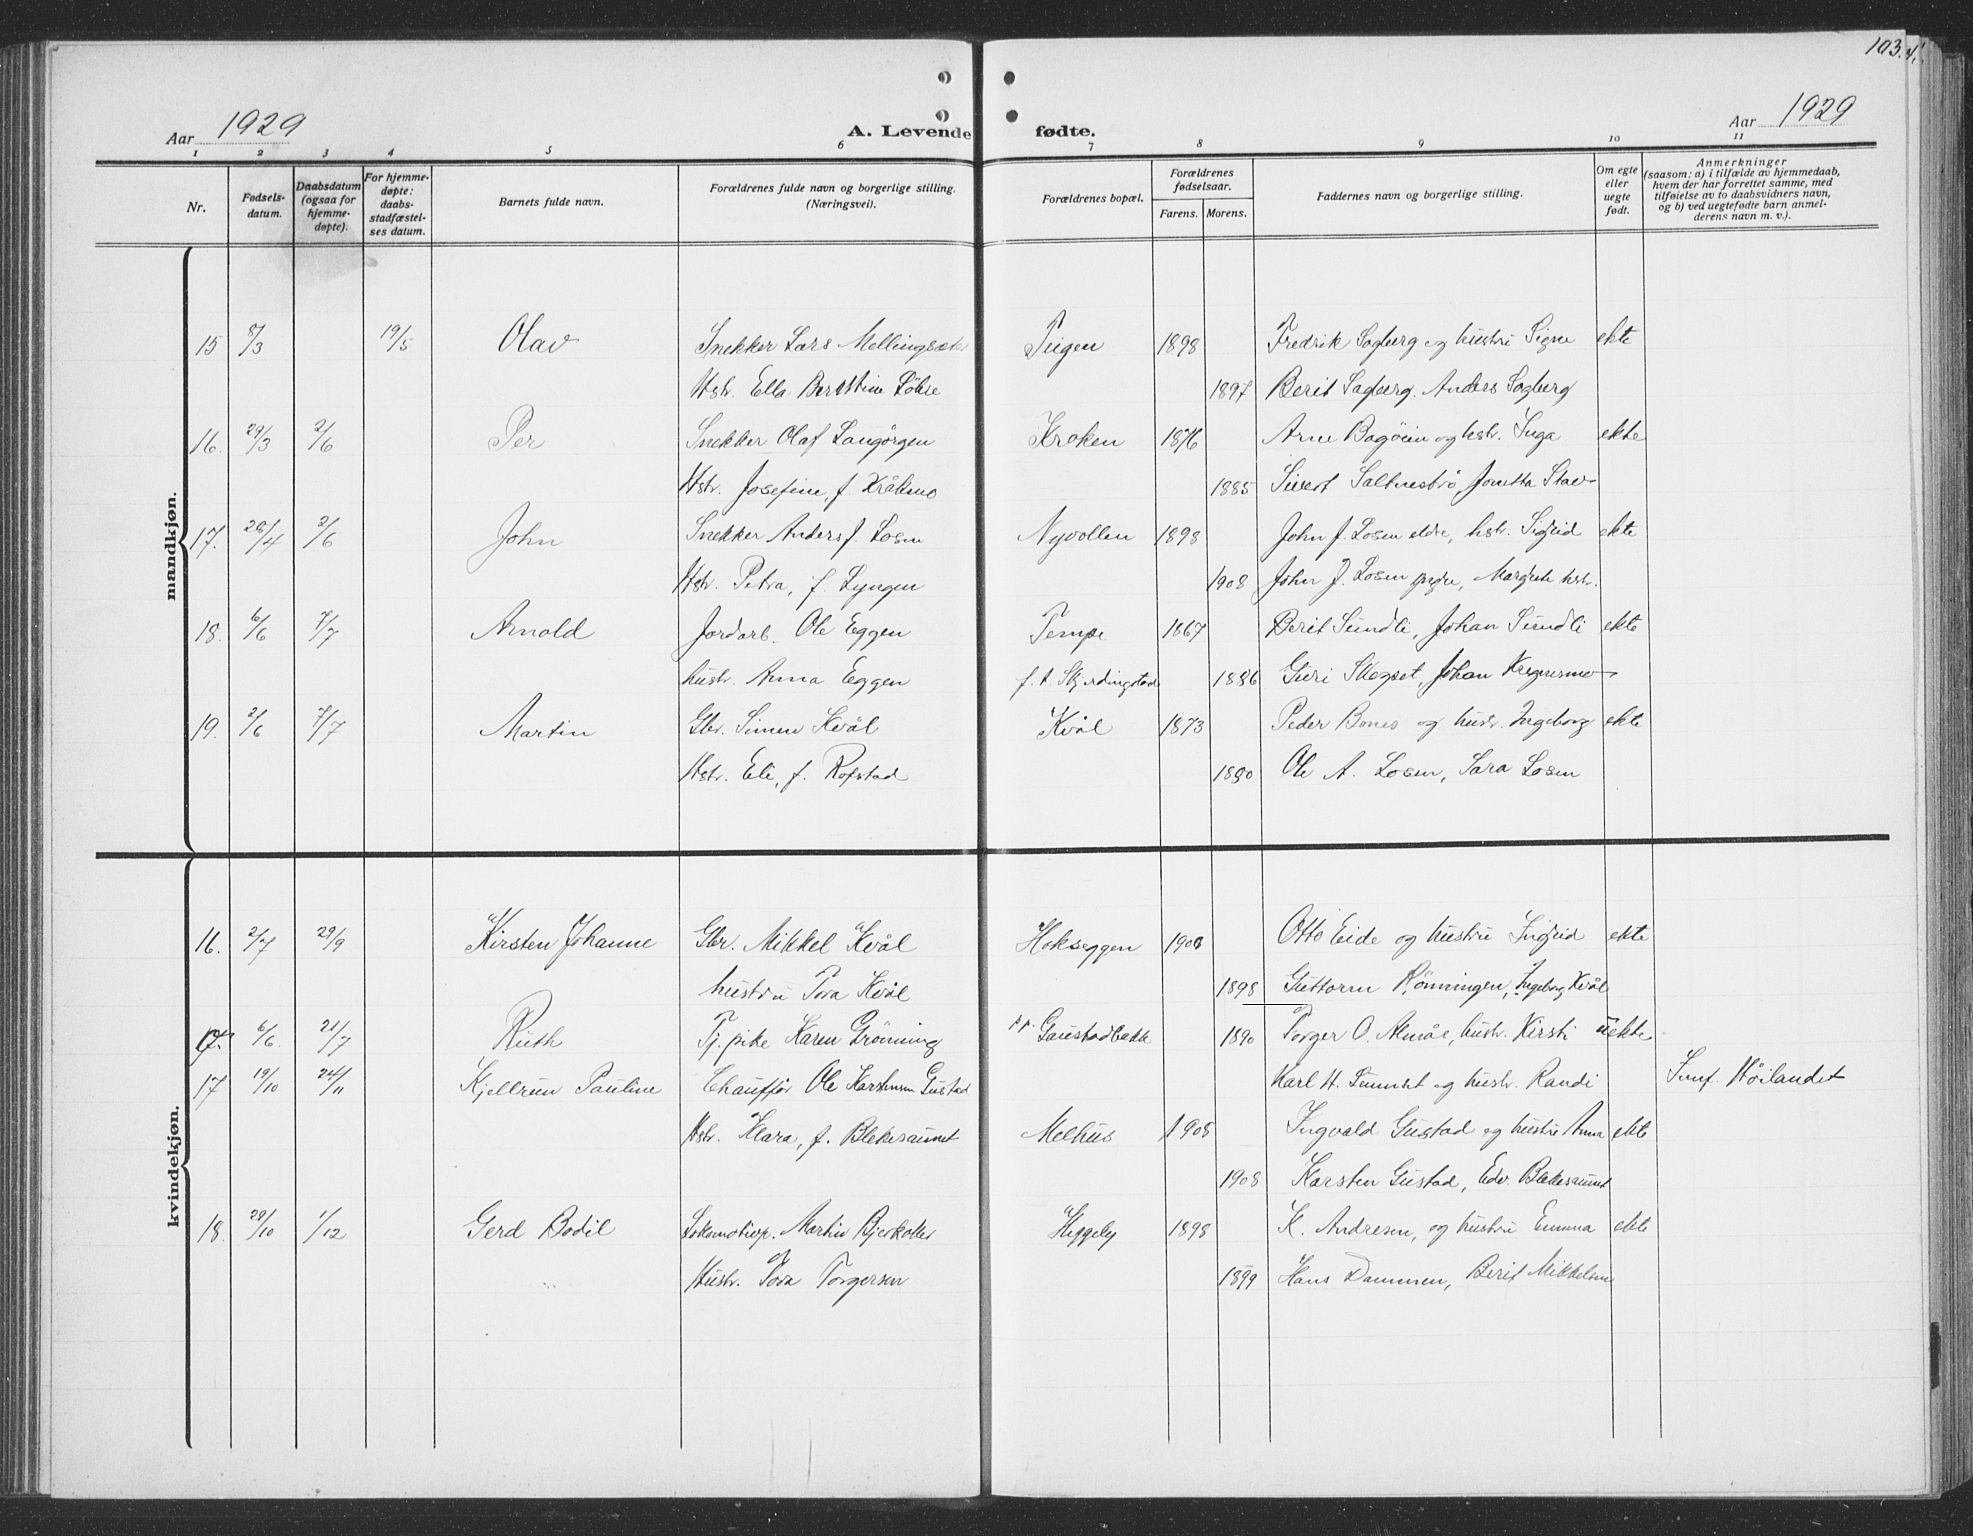 103.
Aar 1929 A. Levende fødte. Aar 1929
1 2 3 4 5 6 7 8 9 10 11
Nr. Fødselsdatum. Daabsdatum (ogsaa for hjemmedøpte). For hjemmedøpte: daabsstadfæstelses datum. Barnets fulde navn. Forældrenes fulde navn og borgerlige stilling. (Næringsvei). Forældrenes bopæl. Forældrenes fødselsaar. Farens. Morens. Faddernes navn og borgerlige stilling. Om egte eller uegte født. Anmerkninger (saasom: a) i tilfælde av hjemmedaab, hvem der har forrettet samme, med tilføielse av to daabsvidners navn, og b) ved uegtefødte barn anmelderens navn m. v.).
mandkjøn.
15 8/3 19/5 Olav Snekker Lars Mellingsæter Teigen 1898 Fredrik Sagberg og hustru Signe ekte
Hstr. Ella Berottine Løhre 1897 Berit Sagberg. Anders Sagberg
16. 29/3 2/6 Per Snekker Olaf Langørgen Kroken 1876 Arne Bagøien og hstr. Inga ekte
Hstr. Josefine, f. Kråkmo 1885 Sivert Saltnesbrö Jonetta Stav
17. 28/4 2/6 John Snekker Anders J. Losen Nyvollen 1898 John J. Losen eldre, hstr. Sigrid ekte
Hstr. Petra, f. Lyngen 1908 John J. Losen yngre, Margrete hstr.
18. 6/6 7/7 Arnold Jordarb. Ole Eggen Tempe 1867 Berit Sundli, Johan Sundli ekte
hustr. Anna Eggen f. t. Skjerdingstad 1886 Guri Skogset, Johan
19. 2/6 7/7 Martin Gbr. Simen Kvål Kvål 1873 Peder Bones og hustr. Ingeborg ekte
Hstr. Eli, f. Rofstad 1890 Ole A. Losen, Sara Losen
kvindekjøn.
16. 2/7 29/9 Kirsten Johanne Gbr. Mikkel Kvål Hokseggen 1900 Otto Eide og hustru Ingrid ekte
hustru Tora Kvål 1898 Guttorm Rönningen, Ingeborg Kvål
17. 6/6 21/7 Ruth Tj. pike Karen Grönning Gaustadbakk 1890 Torger O. Almås, hustr. Kirsti uekte
17 19/10 24/11 Kjellrun Pauline Chauffør Ole Karstensen Gustad Karl H. Tumset og hustr. Randi Høilandet
Hstr. Klara, f. Blekesaunet Melhus 1908 Ingvald Gustad og hustru Anna ekte
1908 Karsten Gustad, Edv. Blekesaunet
18. 29/10 1/12 Gerd Bodil Lokomotivp. Martin Bjerkotter Heggely 1898 K. Andresen, og hustru Emma ekte
Hustr. Tora Torgersen 1899 Hans Dammen, Berit Mikkelsen